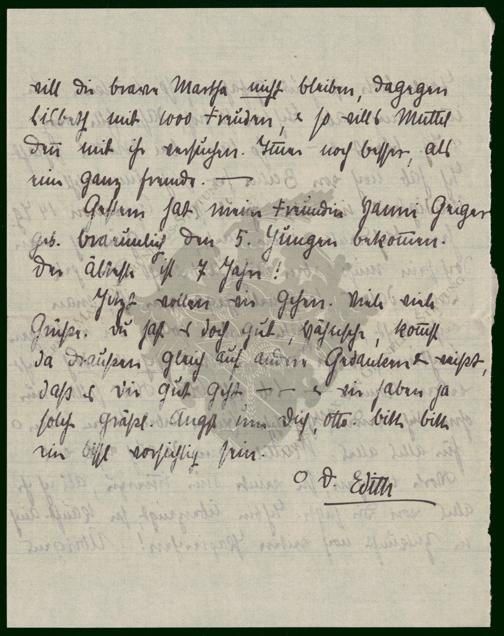 will die brave Martha nicht bleiben, dagegen
Lisbeth mit 1000 Freuden, & so will's Muttel
denn mit ihr versuchen. Immer noch besser, als
eine ganz fremde. —
Gestern hat meine Freundin Hanni Geiger
geb. Bräunlich den 5. Jungen bekommen.
Der Älteste ist 7 Jahre!
Jetzt wollen wir gehen. Viele viele
Grüße. Du hast es doch gut, kommst
da draußen gleich auf andere Gedanken & weißt,
daß es wir gut geht — & wir haben ja
solch gräßl. Angst um Dich, Otto. bitte bitte
ein bissl vorsichtig sein.
D. Edith